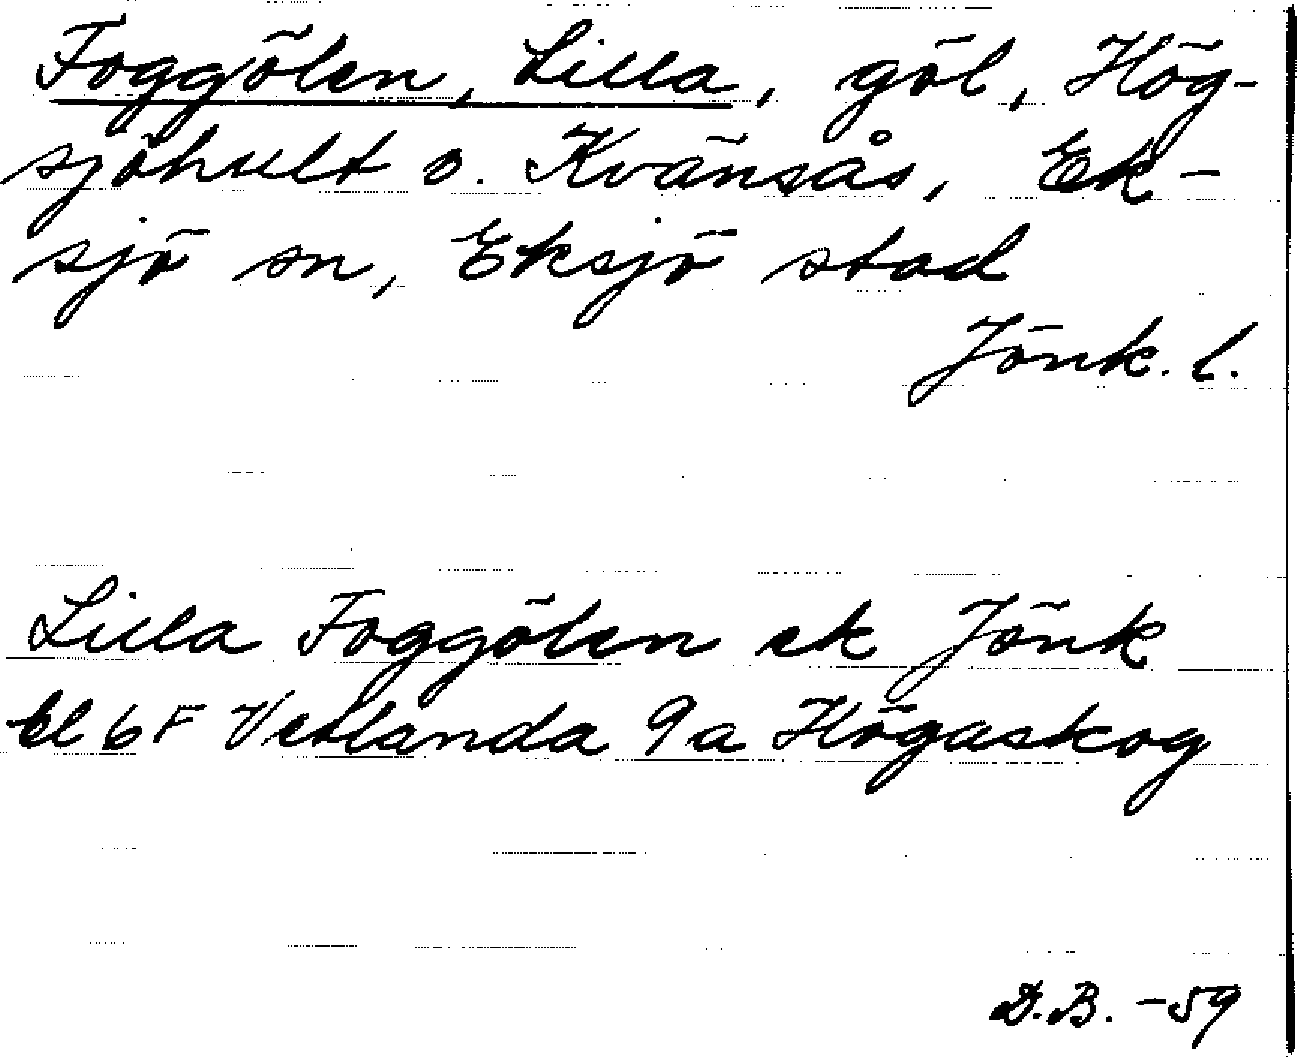 Foggölen, Lilla, göl, Hög-
sjöhult o. Kvänsås, Ek-
sjö sn, Eksjö stad
Jönk. l.
Lilla Foggölen ek Jönk
bl 6F Vetlanda 9a Högaskog
D.B. -59